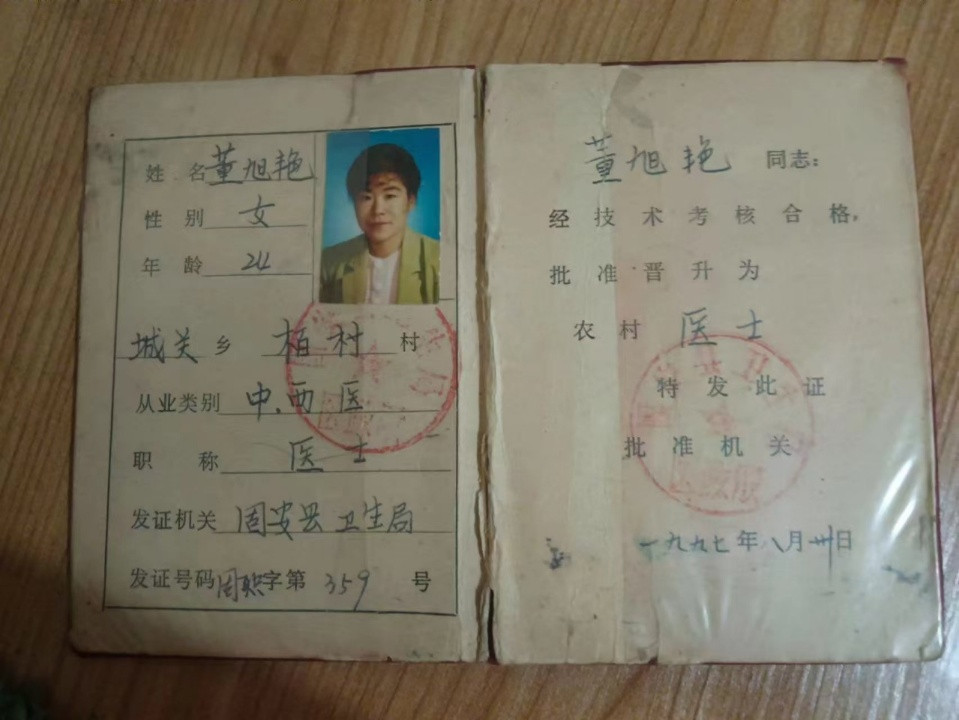 姓 名 董旭艳
性 别 女
年 龄 24
城关 乡 柏村 村
从业类别 中.西医
职 称 医士
发证机关 固安县卫生局
发证号码 固职字第 359 号
董旭艳 同志:
经技术考核合格,
批准晋升为
农村 医士
特发此证
批准机关
一九九七年八月卅日